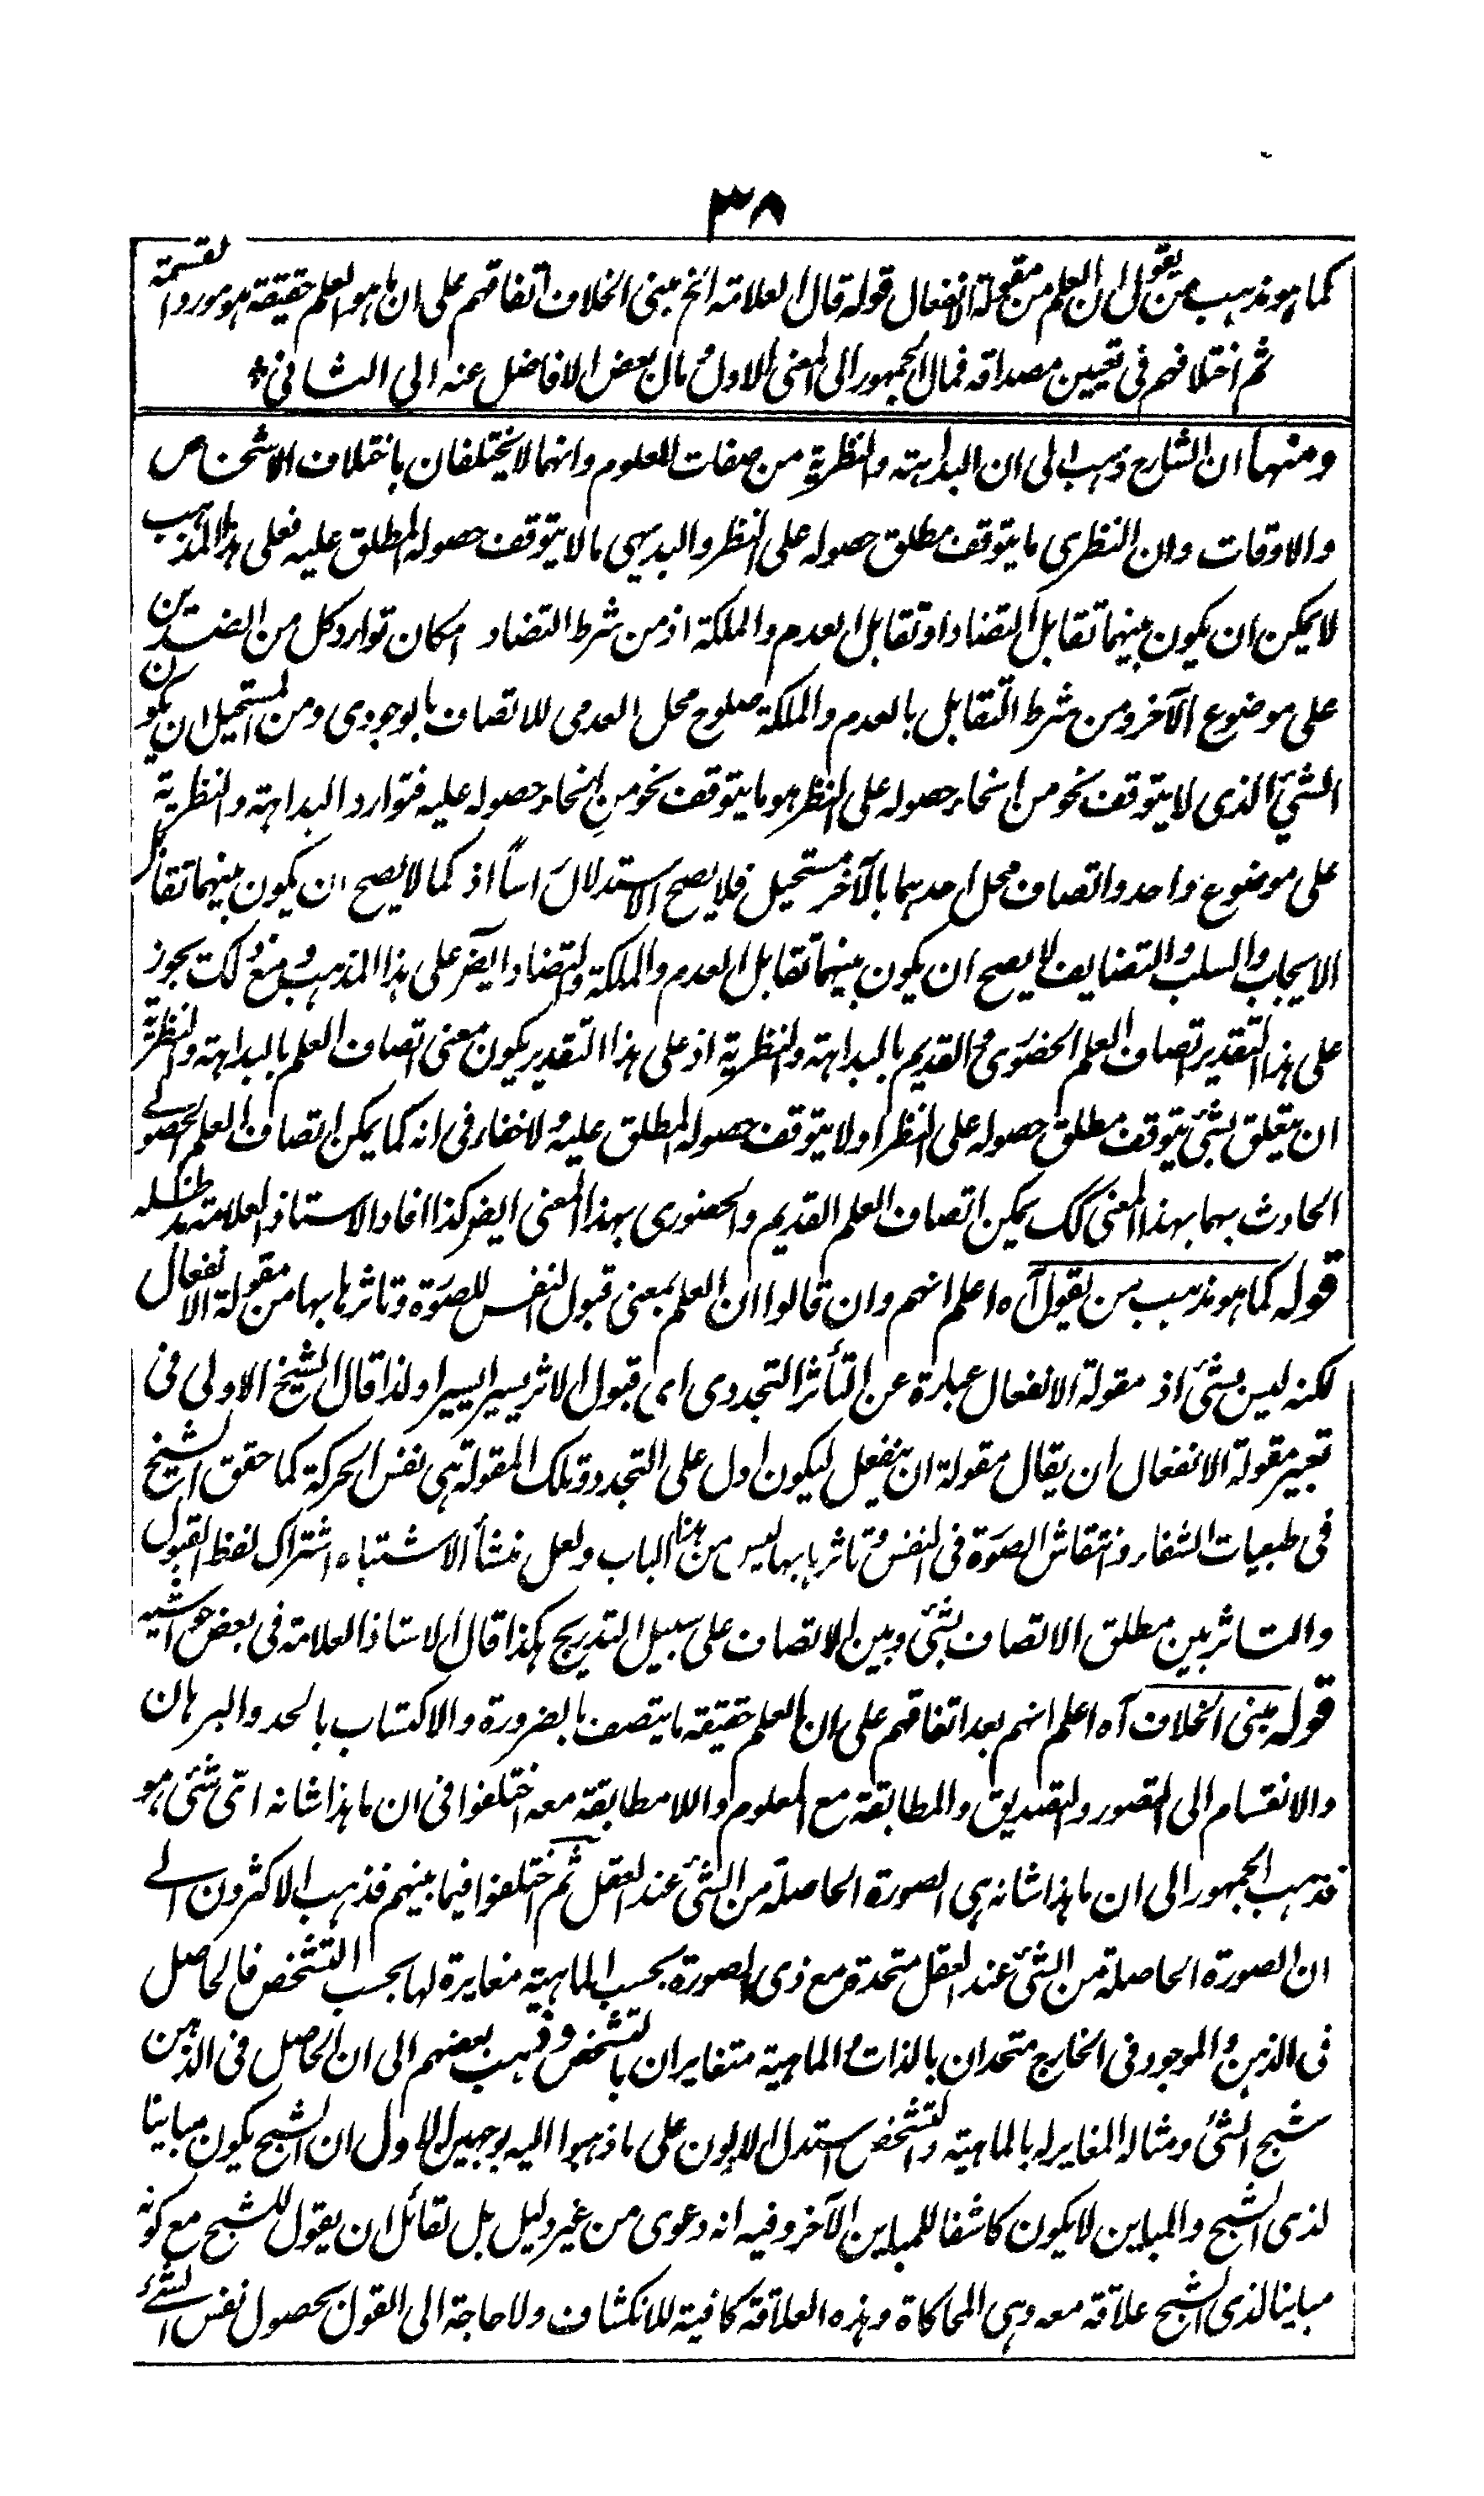 ٣٨
كما هو مذهب من يقول ان العلم من مقولة الانفعال قوله قال العلامة الخ مبنى الخلاف اتفاقهم على ان ما هو العلم حقيقة هو مورد القسمة
ثم اختلافهم فى تعيين مصداقه فمال الجمهور الى المعنى الاول و مال بعض الافاضل عنه الى الثانى
ومنها ان الشارح ذهب الى ان البداهة والنظرية من صفات المعلوم وانهما لا يختلفان باختلاف الاشخاص
والاوقات وان النظرى ما يتوقف مطلق حصوله على النظر والبديهى ما لا يتوقف حصوله المطلق عليه فعلى هذا المذهب
لا يمكن ان يكون بينهما تقابل التضاد او تقابل العدم والملكة اذ من شرط التضاد امكان توارد كل من الضدين
على موضوع الآخر ومن شرط التقابل بالعدم والملكة صلوح محل العدمى للاتصاف بالوجودى ومن المستحيل ان يكون
الشئ الذى لا يتوقف نحو من انحاء حصوله على النظر هو ما يتوقف نحو من انحاء حصوله عليه فتوارد البداهة والنظرية
على موضوع واحد واتصاف محل احدهما بالآخر مستحيل فلا يصح الاستدلال راساً اذ كما لا يصح ان يكون بينهما تقابل
الايجاب والسلب والتضايف لا يصح ان يكون بينهما تقابل العدم والملكة والتضاد ايضر على هذا المذهب ومع ذلك يجوز
على هذا التقدير اتصاف العلم الحضورى والقديم بالبداهة والنظرية اذ على هذا التقدير يكون معنى اتصاف العلم بالبداهة والنظرية
ان يتعلق بشئ يتوقف مطلق حصوله على النظر او لا يتوقف حصوله المطلق عليه ولا خفاء فى انه كما يمكن اتصاف العلم الحصولے
الحادث بهما بهذا المعنى كك يمكن اتصاف العلم القديم والحضورى بهذا المعنى ايضر كذا افاد الاستاذ العلامة مد ظله
قوله كما هو مذهب من يقول آه اعلم انهم وان قالوا ان العلم بمعنى قبول النفس للصورة وتاثرها بها من مقولة الانفعال
لكنه ليس بشئ اذ مقولة الانفعال عبارة عن التأثر التجددى اى قبول الاثر يسيرا يسيرا ولذا قال الشيخ الاولى فى
تعبير مقولة الانفعال ان يقال مقولة ان ينفعل ليكون ادل على التجدد وتلك المقولة هى نفس الحركة كما حقق الشيخ
فى طبعيات الشفاء وانتقاش الصورة فى النفس وتاثرها بها ليس من هذا الباب ولعل منشأ الاشتباه اشتراك لفظ القبول
والتاثر بين مطلق الاتصاف بشئ وبين الاتصاف على سبيل التدريج هكذا قال الاستاذ العلامة فى بعض حواشيه
قوله مبنى الخلاف آه اعلم انهم بعد اتفاقهم على ان العلم حقيقة ما يتصف بالضرورة والاكتساب بالحد والبرهان
والانقسام الى التصور والتصديق والمطابقة مع المعلوم واللا مطابقة معه اختلفوا فى ان ما هذا شانه اى شئ هو
فذهب الجمهور الى ان ما هذا شانه هى الصورة الحاصلة من الشئ عند العقل ثم اختلفوا فيما بينهم فذهب الاكثرون الے
ان الصورة الحاصلة من الشئ عند العقل متحدة مع ذى الصورة بحسب الماهية مغايرة لها بحسب التشخص فالحاصل
فى الذهن والموجود فى الخارج متحدان بالذات والماهية متغايران بالتشخص وذهب بعضهم الى ان الحاصل فى الذهن
شبح الشئ ومثاله المغاير له بالماهية والتشخص استدل الاولون على ما ذهبوا اليه بوجهين الاول ان الشبح يكون مباينا
لذى الشبح والمباين لا يكون كاشفا للمباين الآخر وفيه انه دعوى من غير دليل بل لقائل ان يقول للشبح مع كونه
مباينا لذى الشبح علاقة معه وهى المحاكاة وهذه العلاقة كافية للانكشاف ولا حاجة الى القول بحصول نفس الشئ